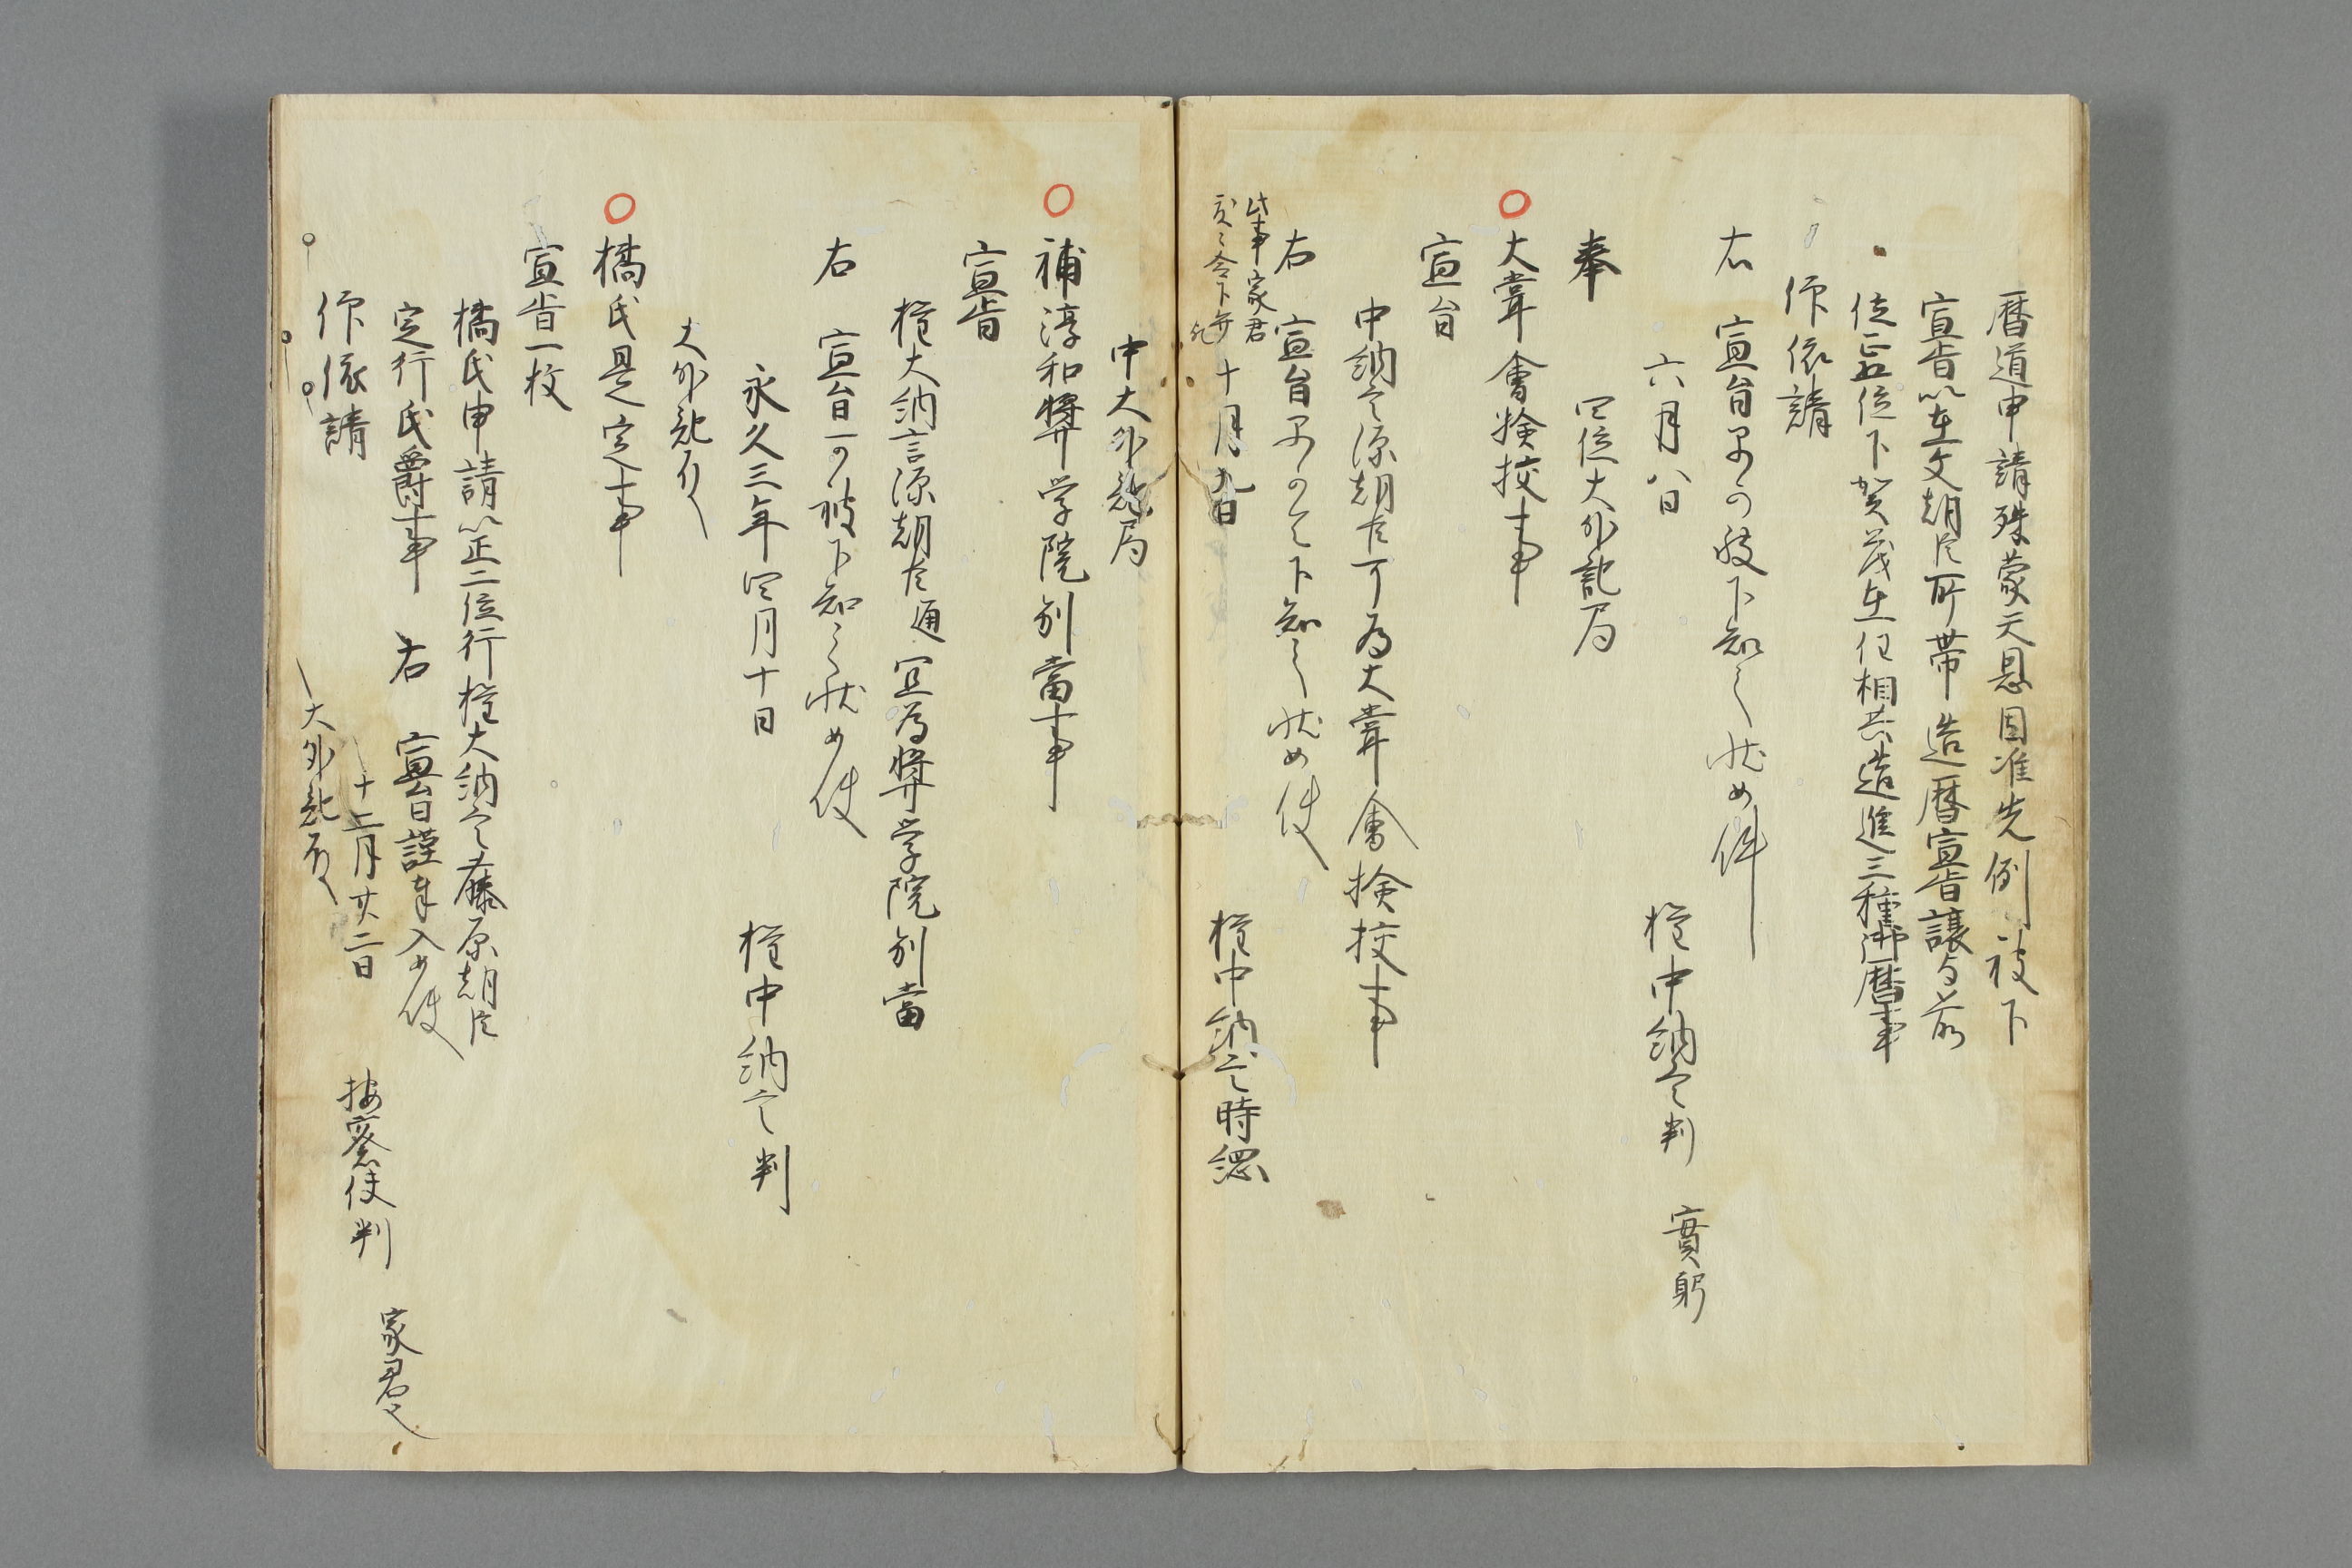 暦道申請殊蒙天恩因准先例被下
宣旨以在文朝臣所帯造暦宣旨譲与前
従五位下賀茂在任相共造進三種御暦事
仰依請
右 宣旨早可被下知之状如件
六月八日 権中納言判 實躬
奉 四位大外記局
大嘗會検校事
宣旨
中納言源朝臣可為大嘗會検校事
右 宣旨早可令下知之状如件
此事家君
十月九日 権中納言時綱
中大外記局
補淳和奨学院別當事
宣旨
権大納言源朝臣通 宜為奨学院別當
右 宣旨可被下知之状如件
永久三年四月十日 権中納言判
大外記局
橘氏是定事
宣旨一枚
橘氏申請以正二位行権大納言藤原朝臣
定行氏爵事 右 宣旨謹奉入如件
仰依請
十二月廿二日 按察使判 家君
大外記局